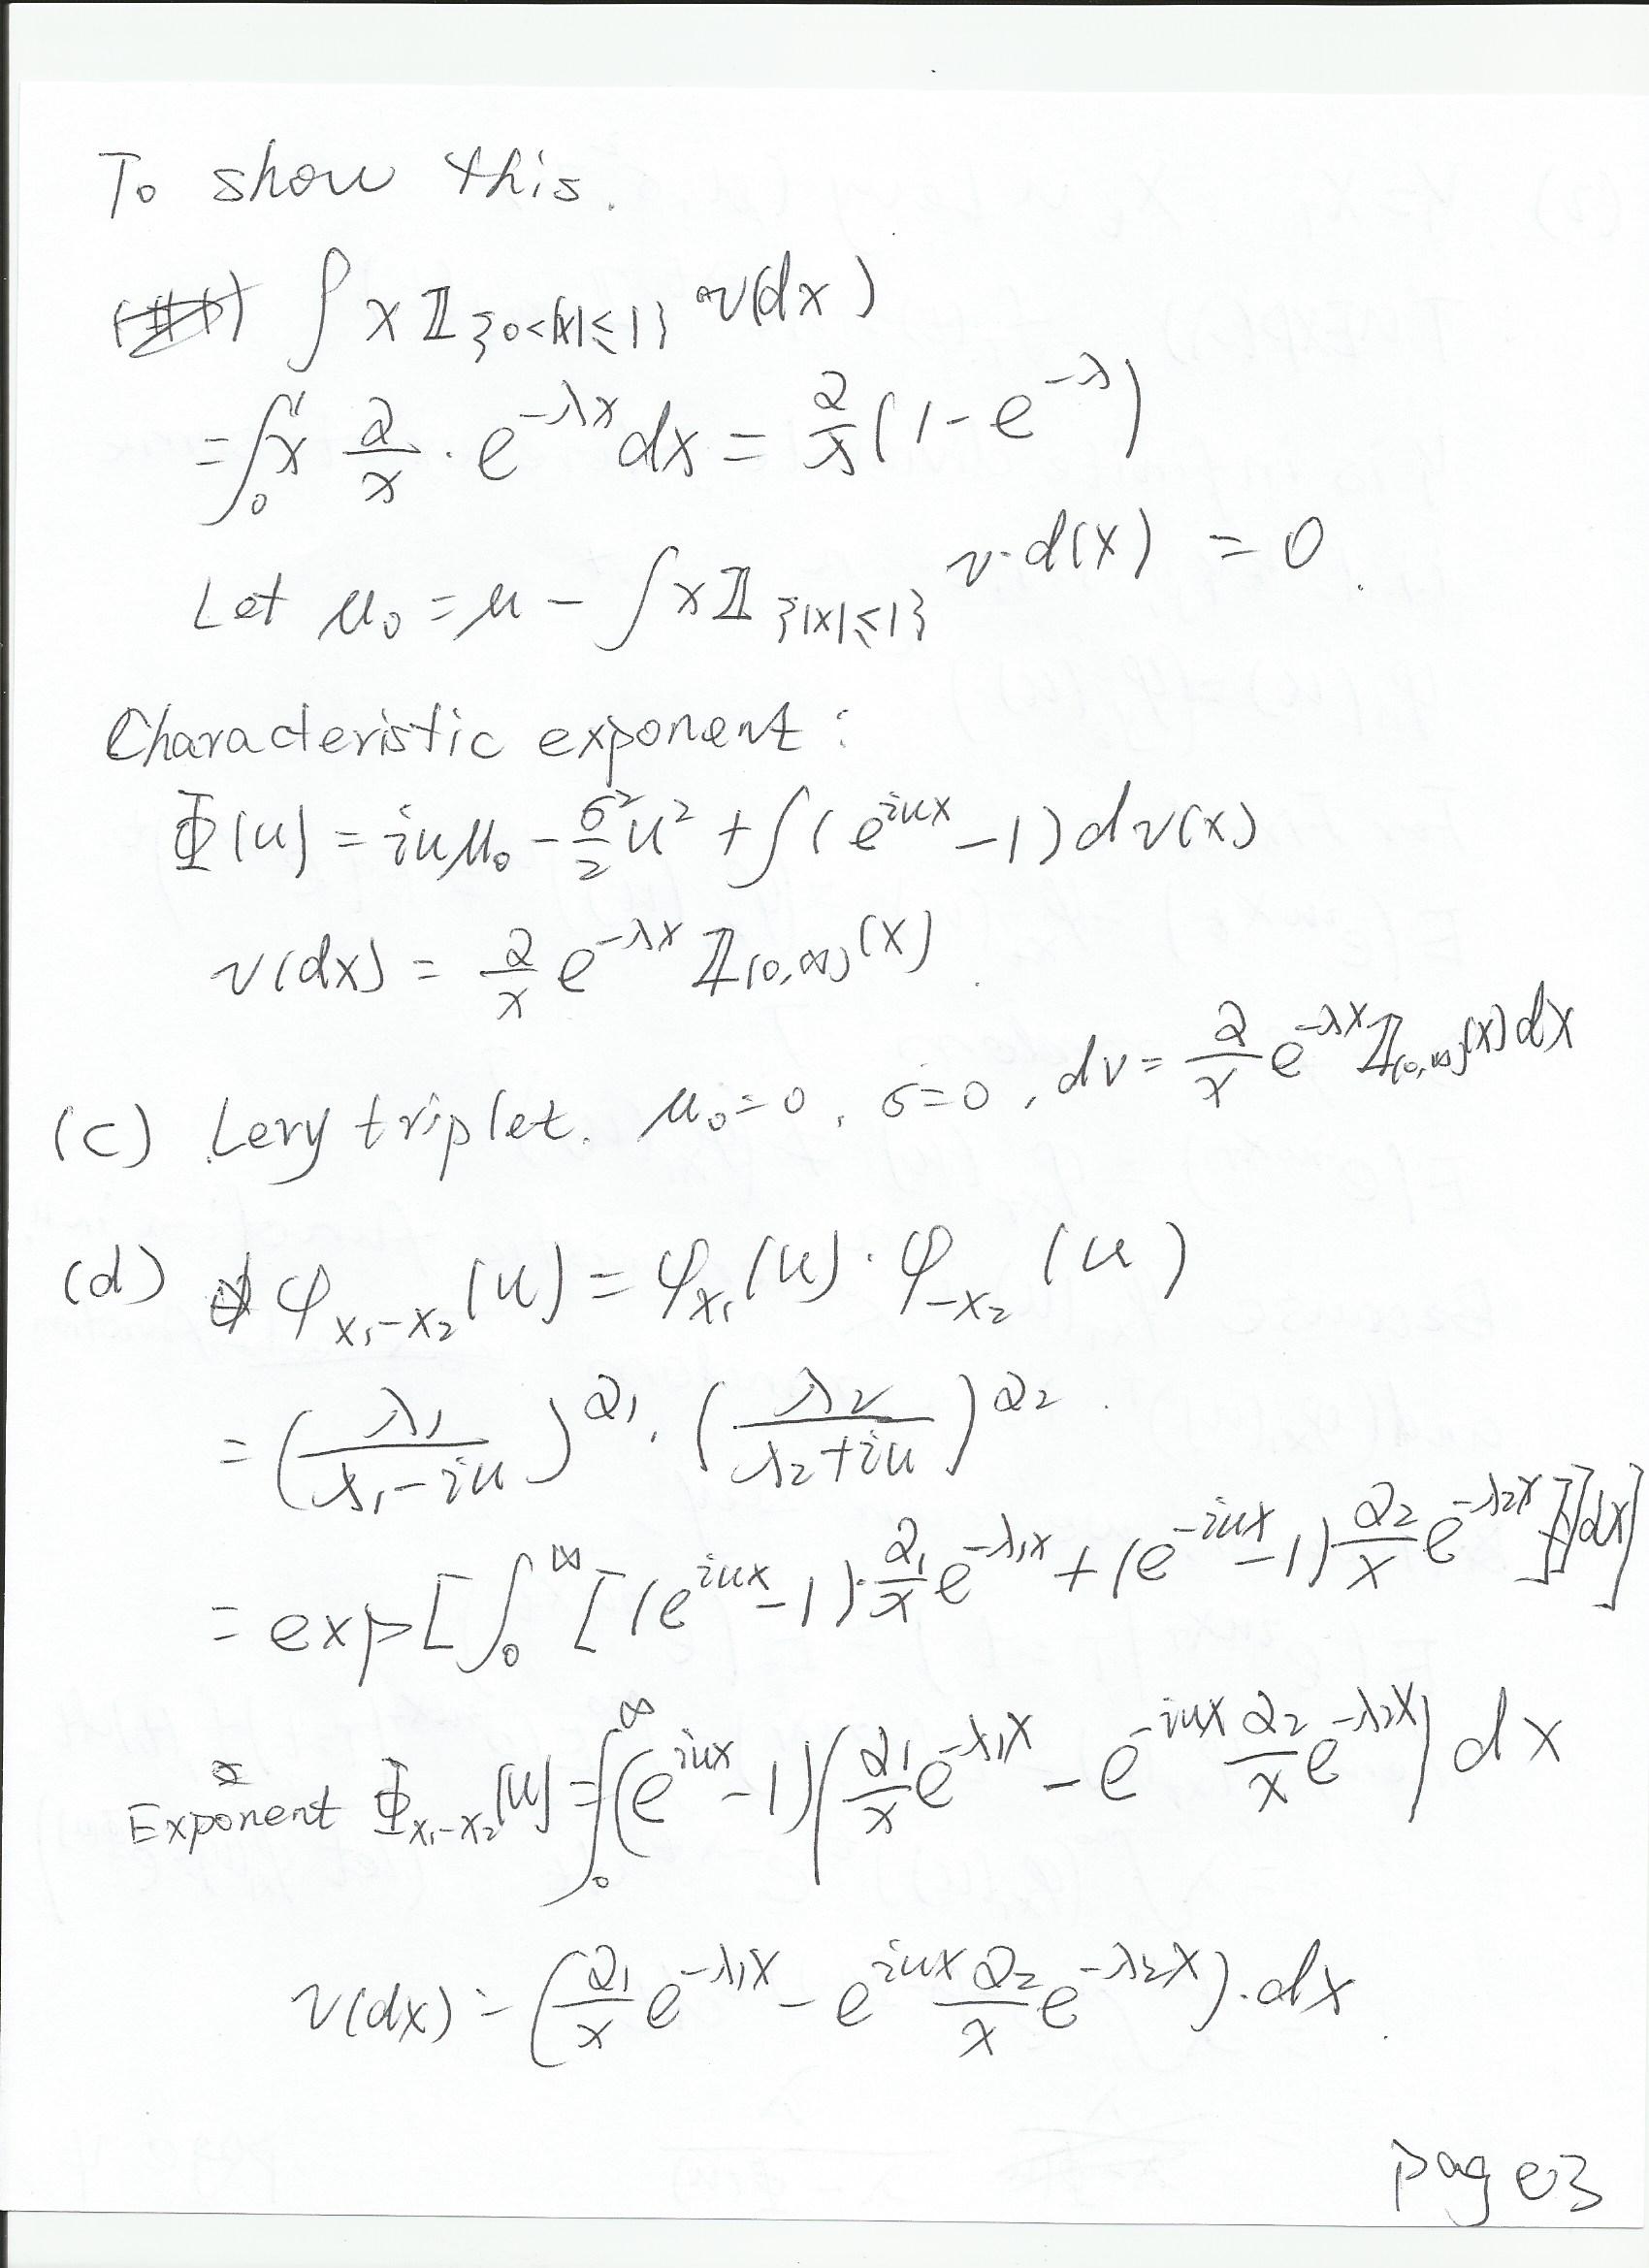 To show this.
∫ x 𝟙_{0<|x|≤1} ν(dx)
= ∫_0^1 x α/x · e^{-λx} dx = α/λ (1 - e^{-λ})
Let μ_0 = μ - ∫ x 𝟙_{|x|≤1} ν·d(x) = 0.
Characteristic exponent:
Φ(u) = iuμ_0 - σ²/2 u² + ∫(e^{iux} - 1) dν(x)
ν(dx) = α/x e^{-λx} 𝟙_{(0,∞)}(x).
(c) Levy triplet. μ_0 = 0, σ = 0, dν = α/x e^{-λx} 𝟙_{(0,∞)}(x) dx
(d) φ_{X_1-X_2}(u) = φ_{X_1}(u) · φ_{-X_2}(u)
= (λ_1/(λ_1 - iu))^{α_1} · (λ_2/(λ_2 + iu))^{α_2}.
= exp[∫_0^∞ [(e^{iux} - 1) · α_1/x e^{-λ_1x} + (e^{-iux} - 1) α_2/x e^{-λ_2x}] dx]
Exponent Φ_{X_1-X_2}(u) = ∫_0^∞ (e^{iux} - 1)(α_1/x e^{-λ_1x} - e^{-iux} α_2/x e^{-λ_2x}) dx
ν(dx) = (α_1/x e^{-λ_1x} - e^{iux} α_2/x e^{-λ_2x}) · dx.
page3